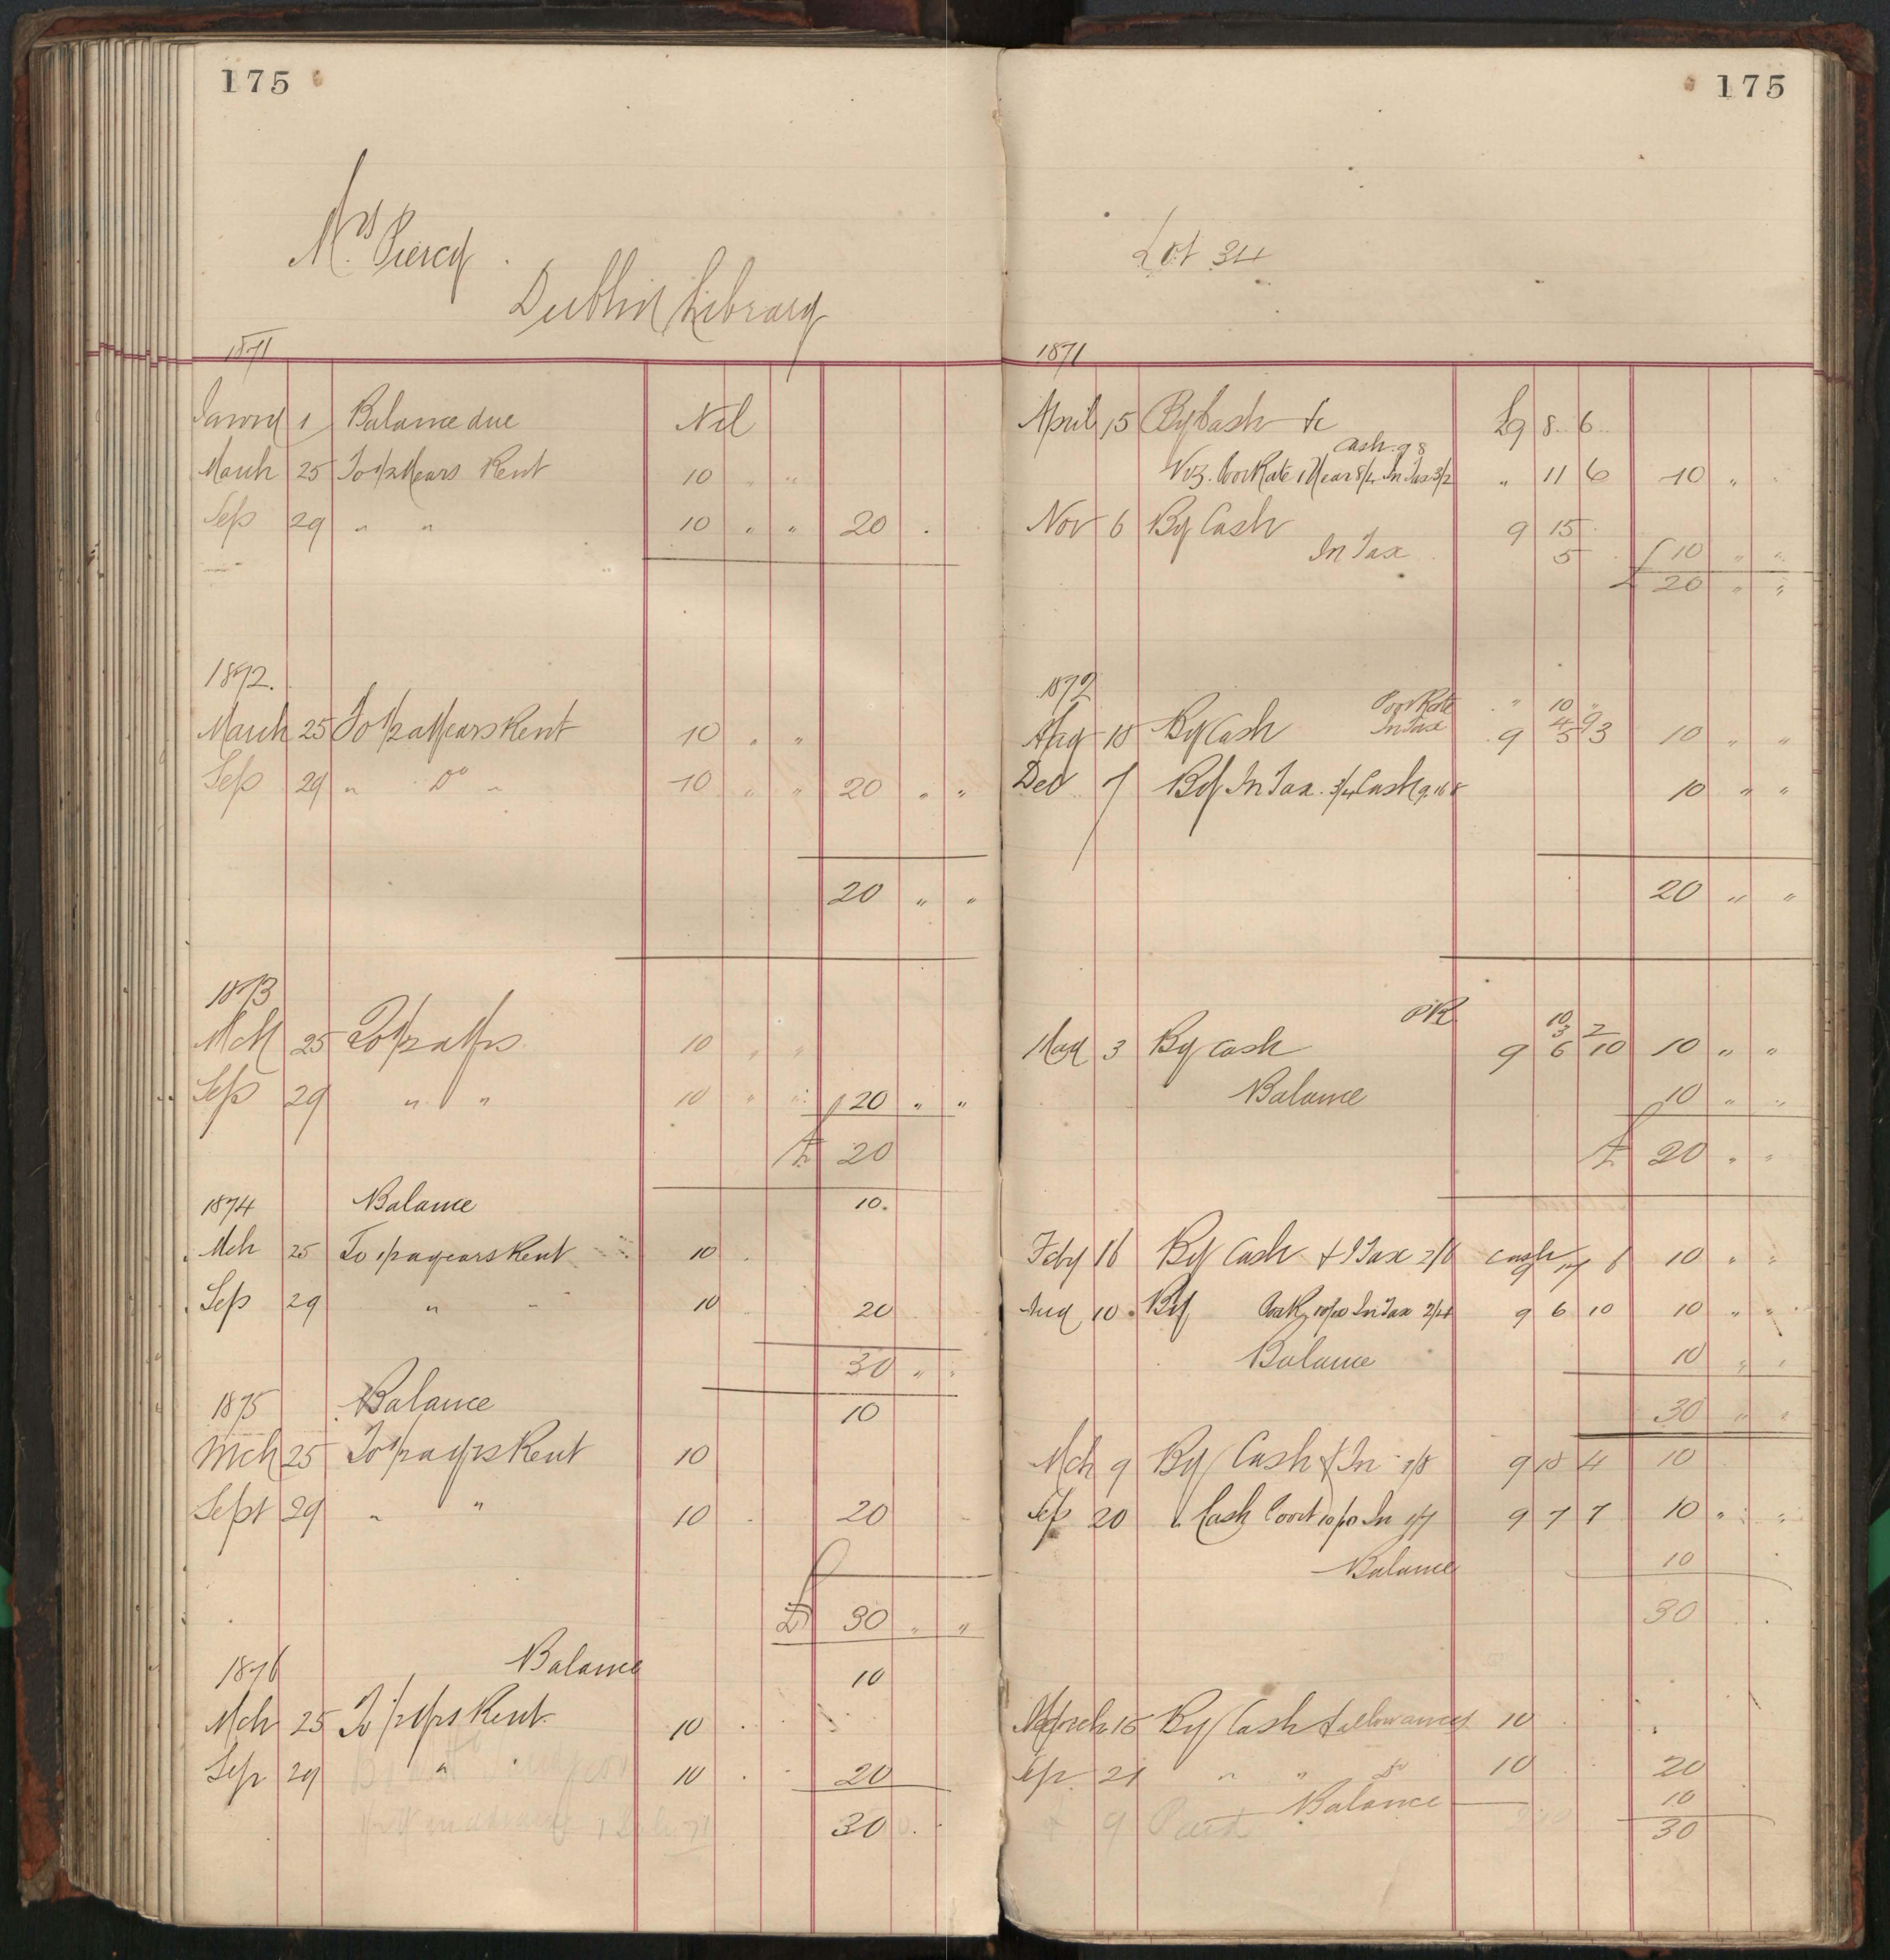 175
Mrs Piercy
Dublin Library
1871
Janry 1 Balance due Nil
March 25 To 1/2 Years Rent 10 " "
Sep 29 " " 10 " " 20 .
1872.
March 25 To 1/2 a Years Rent 10 " "
Sep 29 " Do " 10 " " 20 " "
20 " "
1873
Mch 25 To 1/2 a Yrs 10 " "
Sep 29 " " 10 " " 20 " "
£ 20
1874 Balance 10.
Mch 25 To 1/2 a years Rent 10 .
Sep 29 " " 10 20
30 " "
1875 Balance 10
Mch 25 To 1/2 a yrs Rent 10
Sept 29 " " 10 . 20
£ 30 " "
1876 Balance 10
Mch 25 To 1/2 Yrs Rent 10 .
Sep 29 " " 10 . 20
30
175
Lot 34
1871
April 15 By Cash &c £9 8 6
Cash 9 8
Viz. Poor Rate 1 Year 8/4 In Tax 3/2 " 11 6 10 "
Nov 6 By Cash 9 15
In Tax 5 10 " "
£ 20 " "
1872
Poor Rate " 10 "
In Tax 4 9
By Cash 9 5 3 10 " "
Dec 7 By In Tax 3/4 Cash 9.16 8 10 " "
20 " "
PR 10
3 2
May 3 By cash 9 6 10 10 " "
Balance 10 " "
£ 20 " "
Feby 16 By Cash & I Tax 2/6 cash 9 17 6 10 " "
Aug 10 By 10/10 In Tax 2/4 9 6 10 10 " "
Balance 10 " "
30 " "
Mch 9 By Cash & In 1/8 9 18 4 10
Sep 20 " Cash 10/10 In 1/7 9 7 7 10 " "
Balance 10
30
March 15 By Cash & allowances 10
Sep 21 " " Do 10 20
Balance 10
9 Paid 30